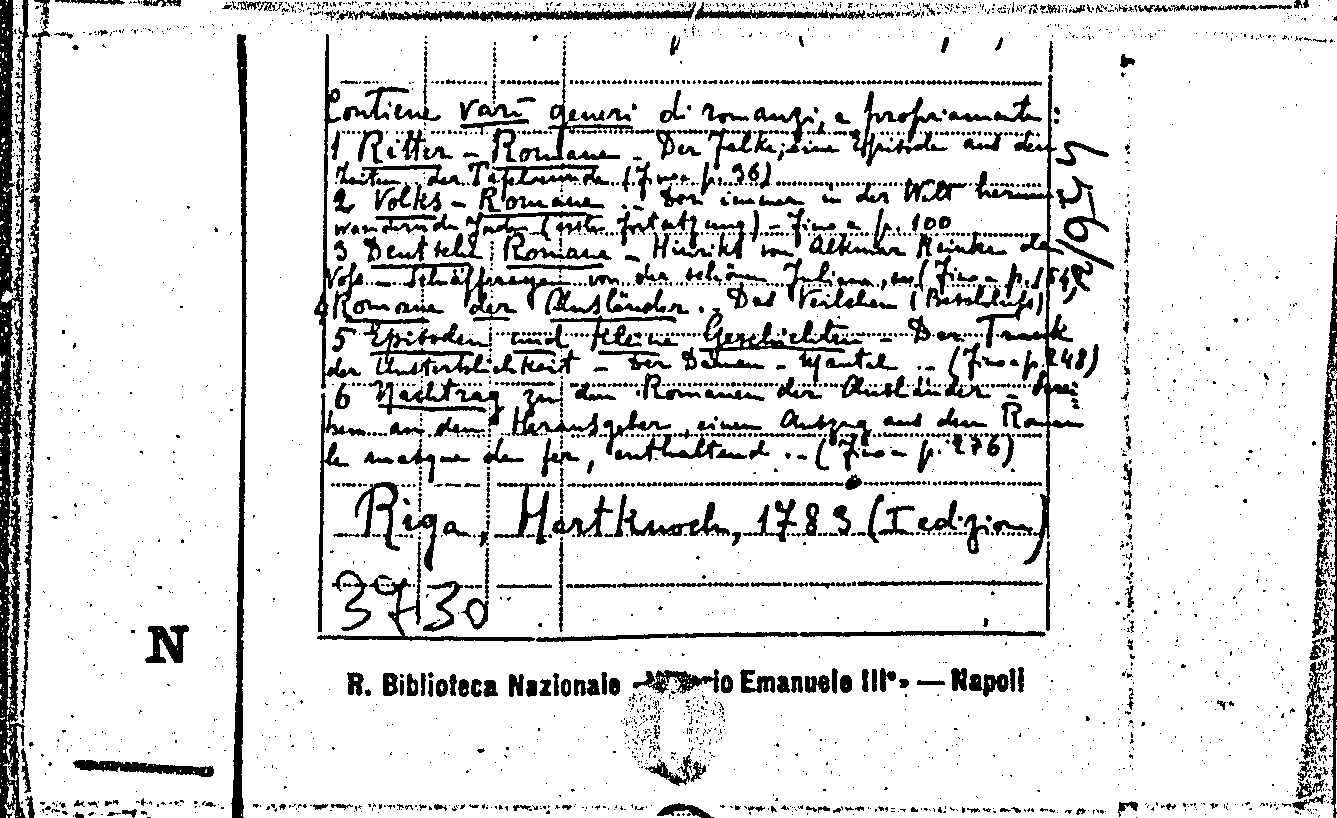 Contiene varii generi di romanzi, e propriamente:
1 Ritter - Romane - Der Falke, eine Episode aus den
Zeiten der Tafelrunde (Fino a p. 96)
2 Volks - Romane - Der immer in der Welt herum
wandernde Jude (erste Fortsetzung) - Fino a p. 100
3 Deutsche Romane - Hinriks von Alkmar Reineke de
Vos - von der schönen Juliana, (Fino a p.
4 Romane der Ausländer - Das Veilchen (Beschluss)
5 Episoden und kleine Geschichten - Der Trank
der Unsterblichkeit - Der Damen - Mantel - (Fino a p. 248)
6 Nachtrag zu den Romanen der Ausländer - Schrei=
ben an den Herausgeber, einen Auszug aus dem Roman
le masque de fer, enthaltend - (Fino a p. 276)
Riga, Hartknoch, 1783 (I edizione)
3730
N
R. Biblioteca Nazionale Emanuele III° » — Napoli